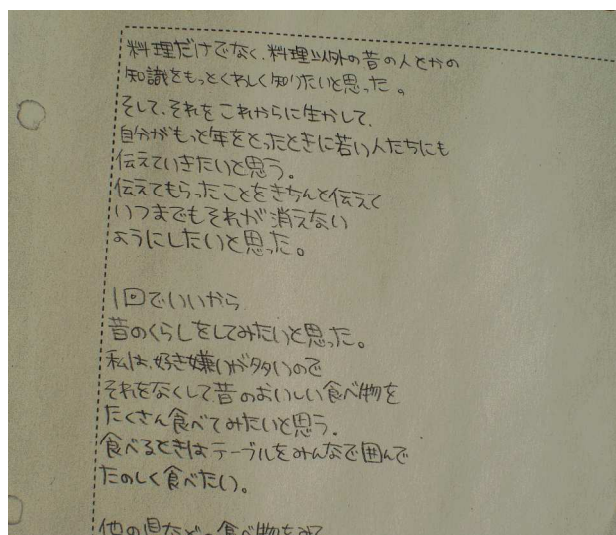 料理だけでなく、料理以外の昔の人とかの
知識をもっとくわしく知りたいと思った。
そして、それをこれからに生かして、
自分がもっと年をとったときに若い人たちにも
伝えていきたいと思う。
伝えてもらったことをきちんと伝えて
いつまでもそれが消えない
ようにしたいと思った。
1回でいいから
昔のくらしをしてみたいと思った。
私は、好き嫌いが多いので
それをなくして昔のおいしい食べ物を
たくさん食べてみたいと思う。
食べるときはテーブルをみんなで囲んで
たのしく食べたい。
他の県などの食べ物をみて